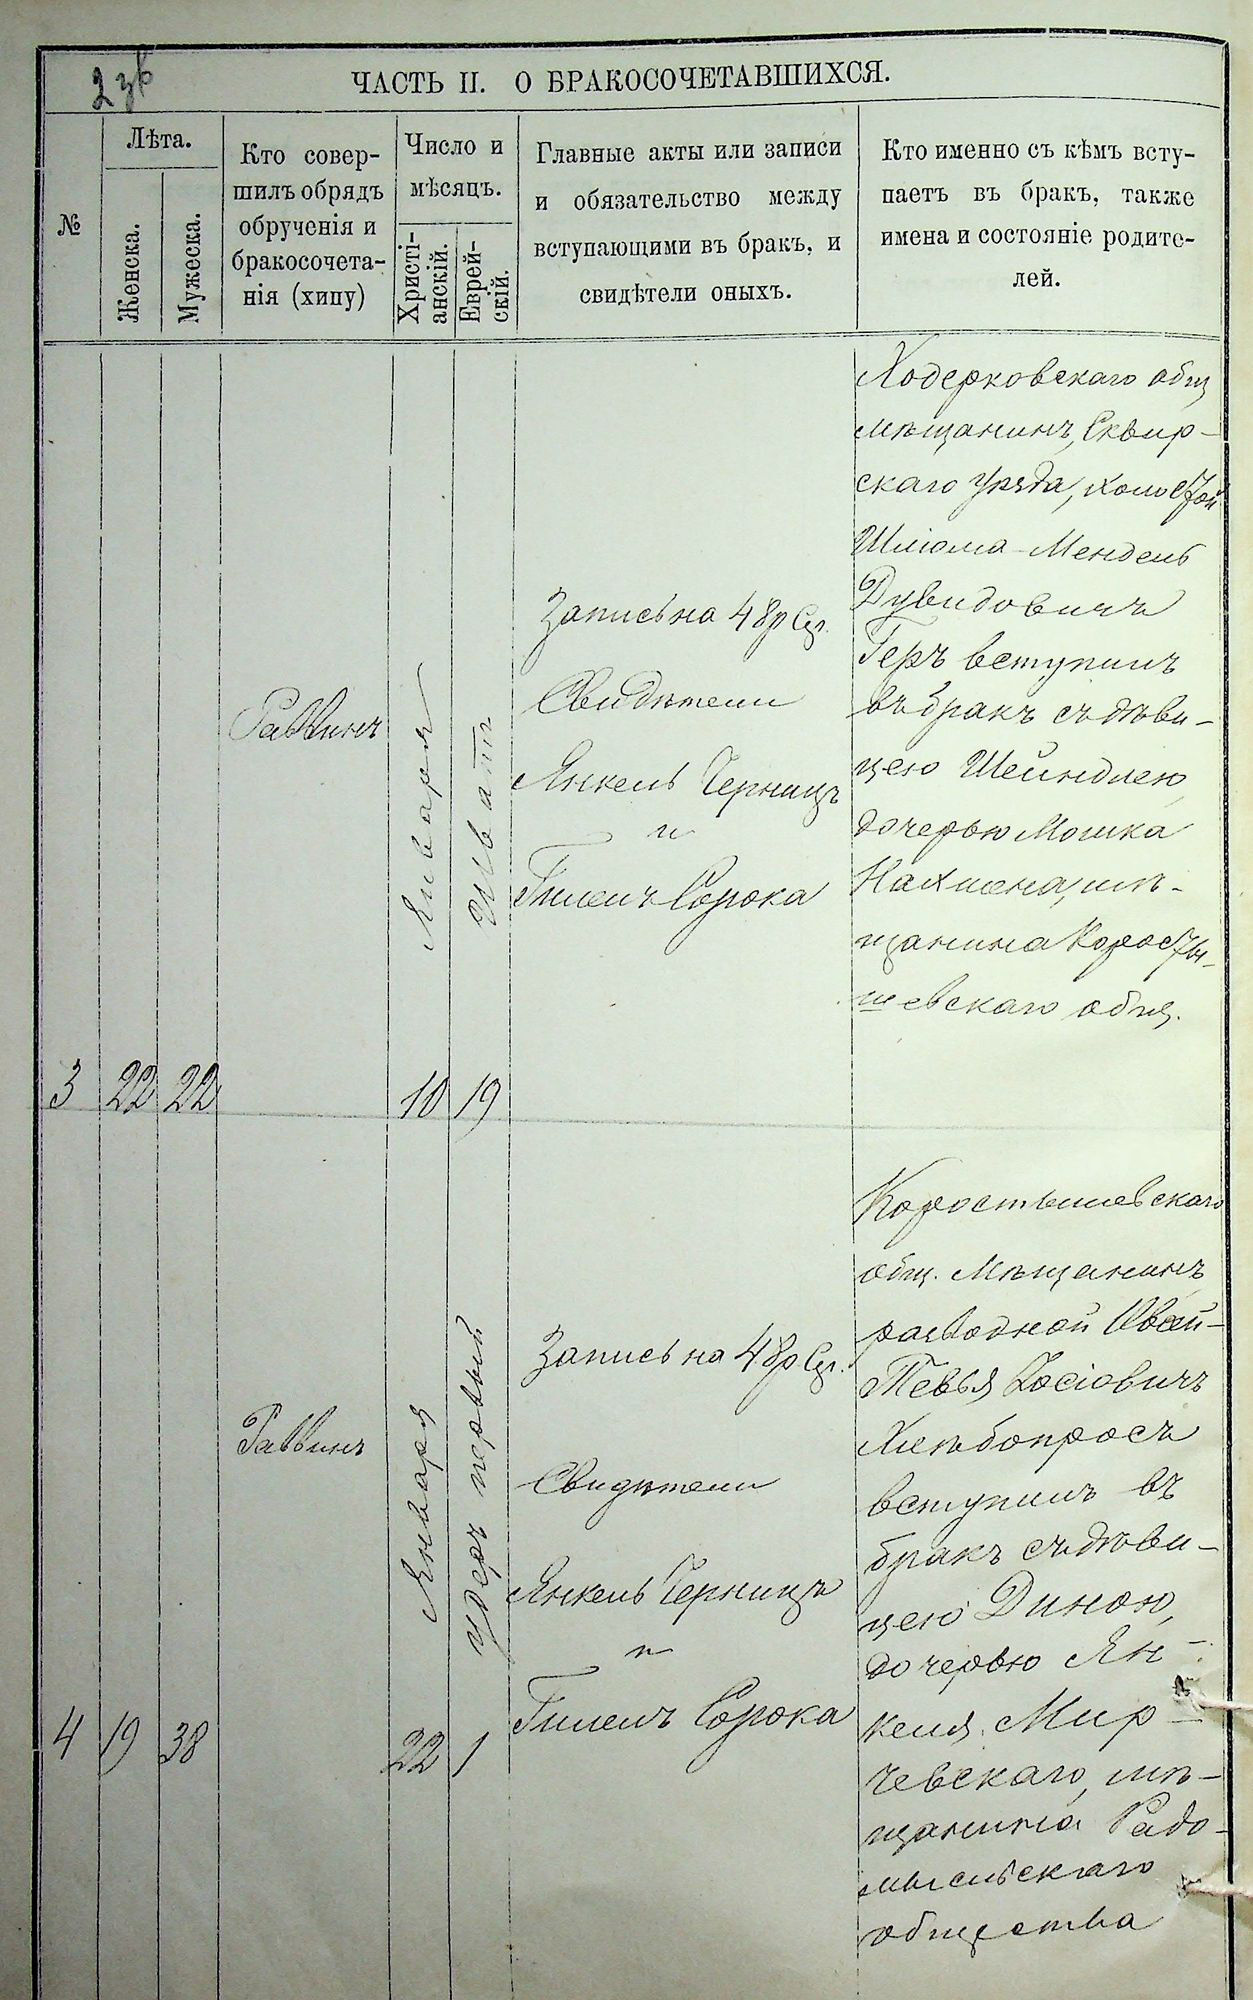 2 зв
ЧАСТЬ II. О БРАКОСОЧЕТАВШИХСЯ.
№
Лѣта.
Женска.
Мужеска.
Кто совер-
шилъ обрядъ
обрученія и
бракосочета-
нія (хипу)
Число и
мѣсяцъ.
Христі-
анскій.
Еврей-
скій.
Главные акты или записи
и обязательство между
вступающими въ бракъ, и
свидѣтели оныхъ.
Кто именно съ кѣмъ всту-
паетъ въ бракъ, также
имена и состояніе родите-
лей.
3
22
22
Раввинъ
Января
10
Шватъ
19
Запись на 48 р Сер.
Свидѣтели
Янкель Черницъ
и
Гилелъ Сорока
Ходорковскаго общ
мѣщанинъ, Сквир-
скаго уѣзда, холостой
Шліома-Мендель
Дувидовичъ
Геръ вступилъ
въ бракъ съ дѣви-
цею Шейндлею
дочерью Мошка
Нахмена, мѣ-
щанина Коросты-
шевскаго общ.
4
19
38
Раввинъ
Января
22
удеръ первый
1
Запись на 48 р Сер.
Свидѣтели
Янкель Черницъ
и
Гилелъ Сорока
Коростышевскаго
общ. мѣщанинъ
разводной
Тевья Іосіовичъ
Хлѣбопросъ
вступилъ въ
бракъ съ дѣви-
цею Диною,
дочерью Ян-
келя Мир-
чевскаго, мѣ-
щанина Радо-
мысльскаго
общества